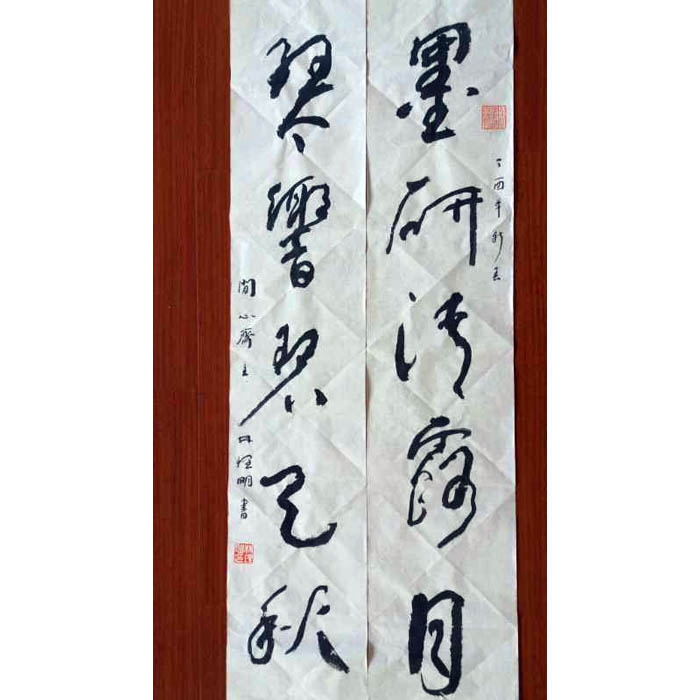 墨研清露月
丁酉年
琴響碧天秋
閒心齋主
明書